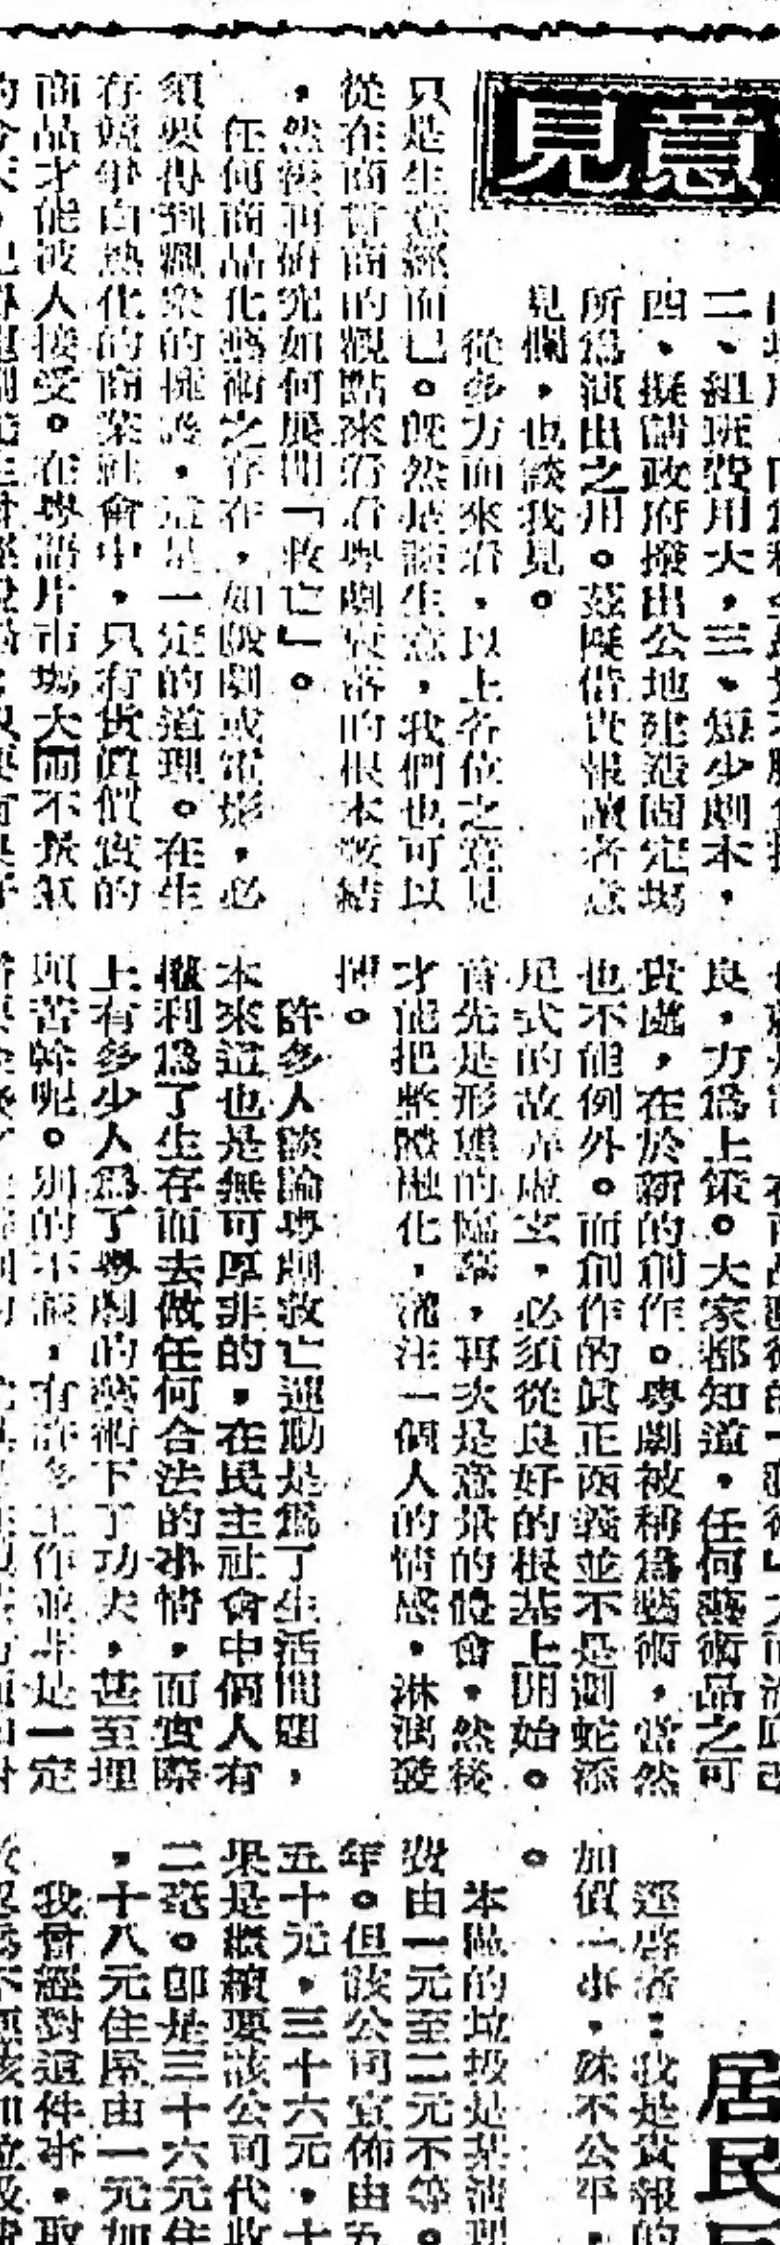 意見
二、組班費用大，三、短少劇本，
四、擬請政府撥出公地建造固定場
所為演出之用。茲旣借貴報讀者意
見欄，也談我見。
從多方面來看，以上各位之意見
只是生意經而已。旣然是談生意，我們也可以
從在商言商的觀點來看看粵劇衰落的根本癥結
，然後再研究如何展開「救亡」。
任何商品化藝術之存在，如戲劇或電影，必
須要得到觀衆的擁護，這是一定的道理。在生
存競爭白熱化的商業社會中，只有貨眞價實的
商品才能被人接受。在粵語片市場大而不景氣
良，方為上策。大家都知道，任何藝術品之可
貴處，在於新的創作。粵劇被稱為藝術，當然
也不能例外。而創作的眞正意義並不是劃蛇添
足式的故弄虛玄，必須從良好的根基上開始。
首先是形態的臨摹，再次是意景的體會，然後
才能把整體融化，灌注一個人的情感，淋漓發
揮。
許多人談論粵劇救亡運動是為了生活問題，
本來這也是無可厚非的，在民主社會中個人有
權利為了生存而去做任何合法的事情，而實際
上有多少人為了粵劇的藝術下了功夫，甚至埋
頭苦幹呢。別的不談，有許多工作並非是一定
居民
逕啓者：我是貴報的
加價一事，殊不公平，
。
本區的垃圾是某清理
費由一元至二元不等。
年。但該公司宣佈由五
五十元，三十六元，十
果是繼續要該公司代收
二毫。卽是三十六元住
，十八元住屋由一元加
我曾經對這件事，取